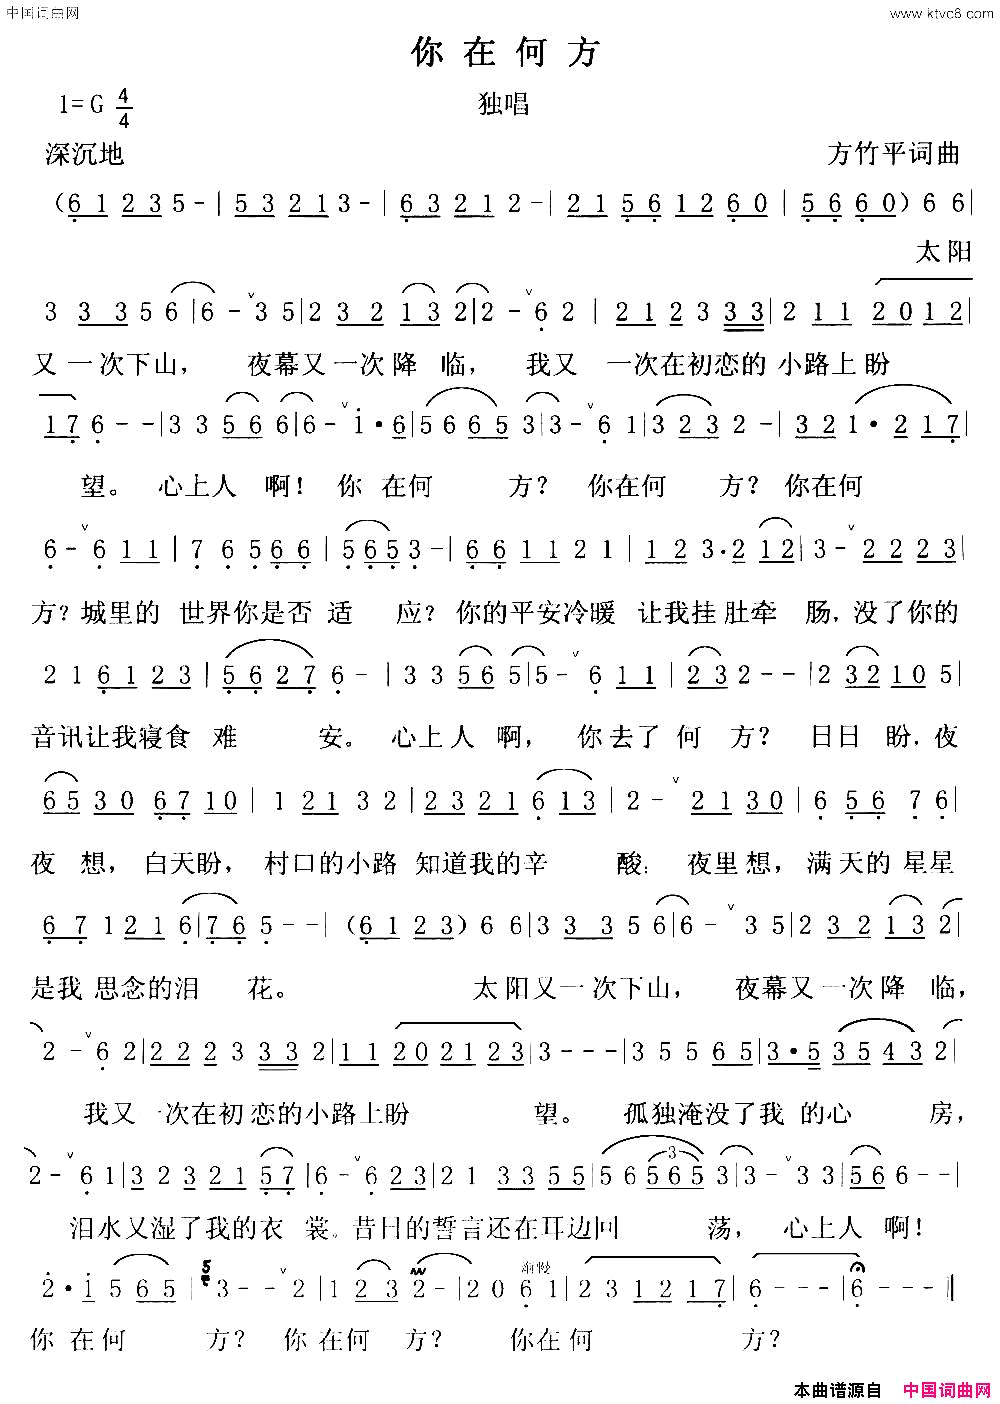 中国词曲网 www.ktvc8.com
你在何方
1=G 4/4 独唱
深沉地 方竹平词曲
（6 1 2 3 5 - | 5 3 2 1 3 - | 6 3 2 1 2 - | 2 1 5 6 1 2 6 0 | 5 6 6 0）6 6 |
太阳
3 3 3 5 6 | 6 - ˅ 3 5 | 2 3 2 1 3 2 | 2 - ˅ 6 2 | 2 1 2 3 3 3 | 2 1 1 2 0 1 2 |
又一次下山， 夜幕又一次降 临， 我又 一次在初恋的 小路上盼
1 7 6 - - | 3 3 5 6 6 | 6 - ˅ 1 · 6 | 5 6 6 5 3 | 3 - ˅ 6 1 | 3 2 3 2 - | 3 2 1 · 2 1 7 |
望。 心上人 啊！ 你 在何 方？ 你在何 方？ 你在何
6 - ˅ 6 1 1 | 7 6 5 6 6 | 5 6 5 3 - | 6 6 1 1 2 1 | 1 2 3 · 2 1 2 | 3 - ˅ 2 2 2 3 |
方？城里的 世界你是否 适 应？你的平安冷暖 让我挂 肚牵 肠，没了你的
2 1 6 1 2 3 | 5 6 2 7 6 - | 3 3 5 6 5 | 5 - ˅ 6 1 1 | 2 3 2 - - | 2 3 2 1 0 5 |
音讯让我寝食 难 安。 心上人 啊， 你去了 何 方？ 日日 盼，夜
6 5 3 0 6 7 1 0 | 1 2 1 3 2 | 2 3 2 1 6 1 3 | 2 - ˅ 2 1 3 0 | 6 5 6 7 6 |
夜 想， 白天盼， 村口的小路 知道我的辛 酸； 夜里想， 满天的 星星
6 7 1 2 1 6 | 7 6 5 - - |（6 1 2 3）6 6 | 3 3 3 5 6 | 6 - ˅ 3 5 | 2 3 2 1 3 2 |
是我 思念的泪 花。 太阳又一次下山， 夜幕又一次降 临，
2 - ˅ 6 2 | 2 2 2 3 3 3 2 | 1 1 2 0 2 1 2 3 | 3 - - - | 3 5 5 6 5 | 3 · 5 3 5 4 3 2 |
我又一次在初恋的小路上盼 望。 孤独淹没了我 的心 房，
2 - ˅ 6 1 | 3 2 3 2 1 5 7 | 6 - ˅ 6 2 3 | 2 1 3 3 5 5 | 5 6 5 6 5 3 | 3 - ˅ 3 3 | 5 6 6 - - |
3
泪水又湿了我的衣 裳。昔日的誓言还在耳边回 荡， 心上人 啊！
2 · 1 5 6 5 | 5 3 - - ˅ 2 | 1 2 3 2 - | 2 0 6 1 | 2 3 1 2 1 7 | 6 - - - | 6 - - - ‖
渐慢
你 在何 方？ 你 在何 方？ 你在何 方？
本曲谱源自 中国词曲网